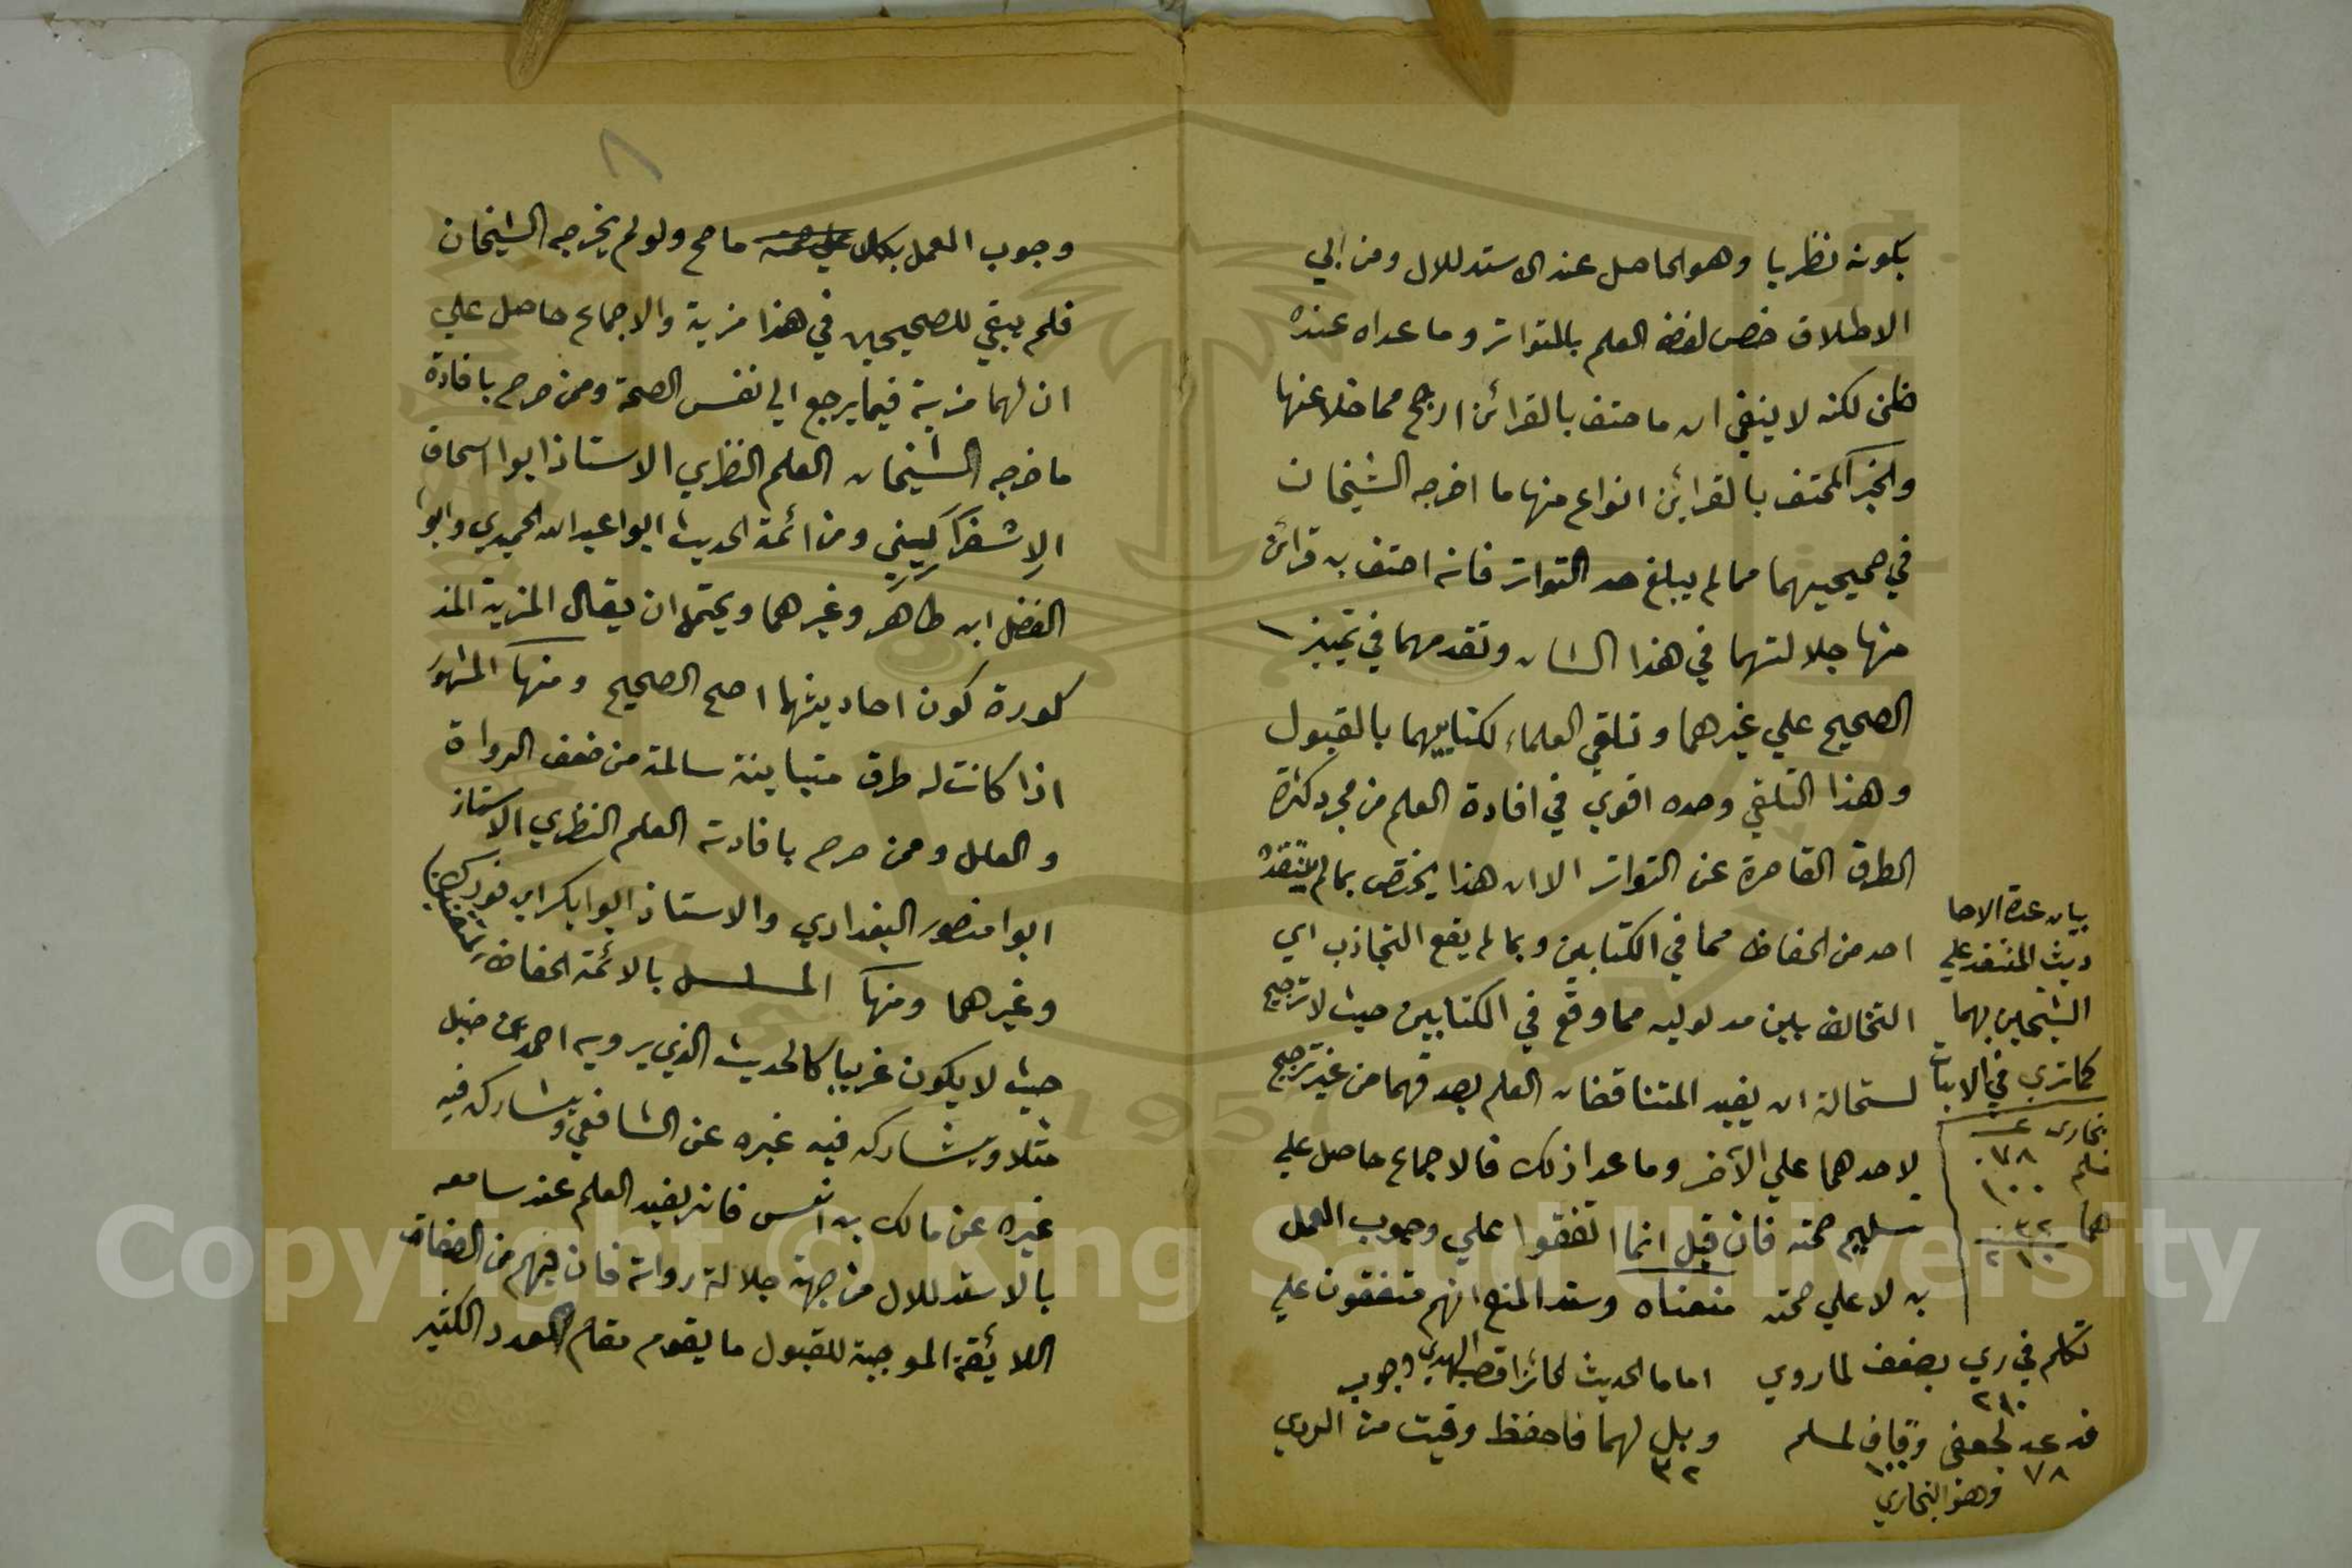 بكونه نظريا وهو الحاصل عند الاستدلال ومن ابي
الاطلاق خص لفظ العلم بالمتواتر وما عداه عنده
ظني لكنه لا ينفي ان ما حتف بالقرائن ارجح مما خلا عنها
والخبر المحتف بالقرائن انواع منها ما اخرجه الشيخان
في صحيحيهما مما لم يبلغ حد التواتر فانه احتف به قرائن
منها جلالتهما في هذا الشان وتقدمهما في تمييز
الصحيح علي غيرهما وتلقي العلماء لكتابيهما بالقبول
وهذا التلقي وحده اقوي في افادة العلم من مجرد كثرة
الطرق القاصرة عن التواتر الا ان هذا يختص بما لم ينتقده
احد من الحفاظ مما في الكتابين وبما لم يقع التجاذب اي
التخالف بين مدلوليه مما وقع في الكتابين حيث لا ترجيح
لستحالة ان يفيد المتناقضان العلم بصدقهما من غير ترجيح
لاحدهما علي الآخر وما عدا ذلك فالاجماع حاصل علي
تسليم صحته فان قيل انما اتفقوا علي وجوب العمل
به لا علي صحته منعناه وسند المنع انهم متفقون علي
وجوب
بيان عدة الاحا
ديث المنتقد علي
الشيخين بهما
كما تري في الابيات
بخاري ٠٧٨
مسلم ١٠٠
هما ٠٣٢
٢١٠
تكلم في ري بضعف لما روي اماما الحديث لحائزا قصب الهدي
٢١٠
فد عد لجعفي وقاف لمسلم وبل لهما فاحفظ وقيت من الردي
٧٨ ١٠٠ ٣٢
وهو البخاري
٨
وجوب العمل بكل ما صح ولو لم يخرجه الشيخان
فلم يبقي للصحيحين في هذا مزية والاجماع حاصل علي
ان لهما مزية فيما يرجع الي نفس الصحة وممن صرح بافادة
ما خرجه الشيخان العلم النظري الاستاذ ابوا اسحاق
الاسفرايني ومن ائمة الحديث ابوا عبد الله الحميدي وابوا
الفضل ابن طاهر وغيرهما ويحتمل ان يقال المزية المذ
كورة كون احاديثهما اصح الصحيح ومنها المشهور
اذا كانت له طرق متباينة سالمة من ضعف الرواة
والعلل وممن صرح بافادته العلم النظري الاستاذ
ابوا منصور البغدادي والاستاذ ابوا بكر ابن فورك
وغيرهما ومنها المسلسل بالائمة الحفاظ المتقنين
حيث لا يكون غريبا كالحديث الذي يرويه احمد بن حنبل
مثلا ويشاركه فيه غيره عن الشافعي ويشاركه فيه
غيره عن مالك بن انس فانه يفيد العلم عند سامعه
بالاستدلال من جهة جلالة رواته فان فيهم من الصفات
اللائقة الموجبة للقبول ما يقوم مقام العدد الكثير